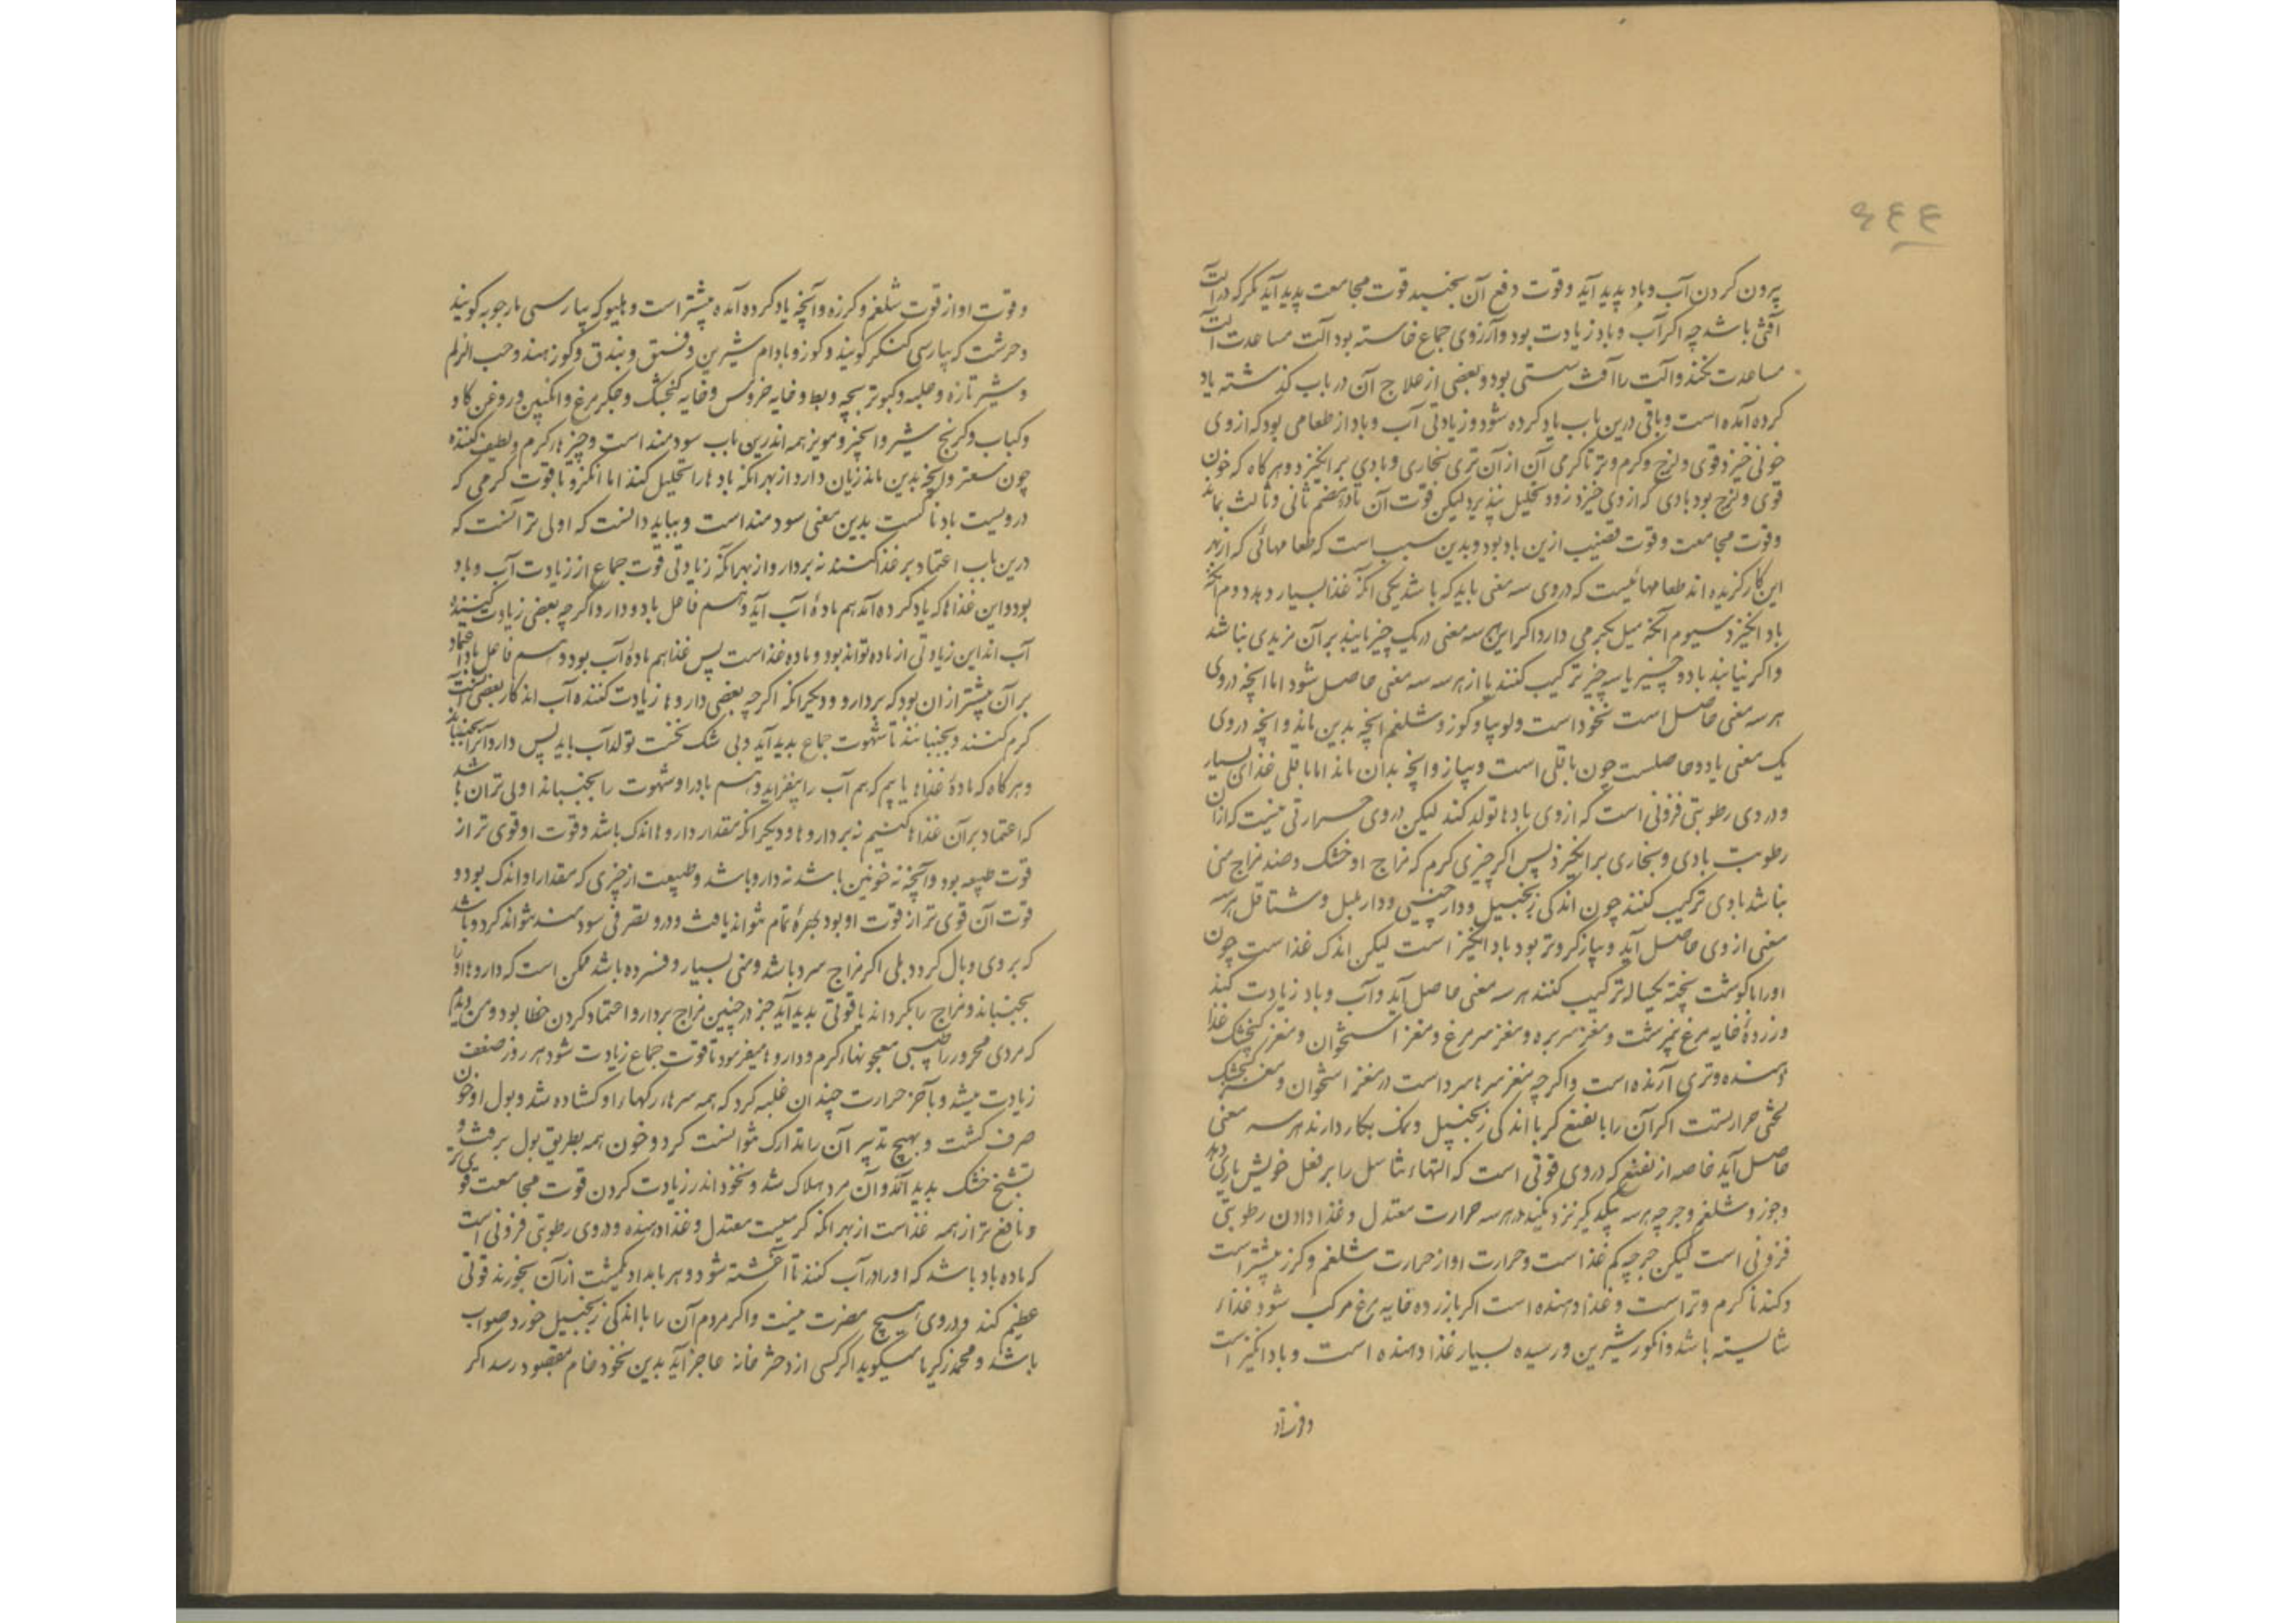 ٤٤٤
بیرون کردن آب و باد پدید آید و قوت دفع آن بجنبد قوت مجامعت پدید آید مکر که در آلت
آفتی باشد چه اکر آب و باد زیادت بود و آرزوی جماع خاسته بود آلت مساعدت آلت
مساعدت نکند و آلت را آفت سستی بود و بعضی از علاج آن در باب کذشته یاد
کرده آمده است و باقی درین باب یاد کرده شود و زیادتی آب و باد از طعامی بود که از وی
خونی خیزد قوی و لزج و کرم و تر تا کرمی آن از آن تری بخاری و بادی بر انکیزد و هر کاه که خون
قوی و لزج بود بادی که از وی خیزد زود تحلیل نپذیرد لیکن قوت آن تا هضم ثانی و ثالث بماند
و قوت مجامعت و قوت قضیب ازین باد بود و بدین سبب است که طعامهائی که از بهر
این کار کزیده اند طعامهائیست که در وی سه معنی باید که باشد یکی آنکه غذا بسیار دهد دوم آنکه
باد انکیزد سیوم آنکه میل بکرمی دارد اکر این سه معنی در یک چیز یابند بر آن مزیدی نباشد
و اکر نیابند با دو چیز یا سه چیز ترکیب کنند یا از هر سه سه معنی حاصل شود اما آنچه در وی
هر سه معنی حاصل است نخود است و لوبیا و کوز و شلغم آنچه بدین ماند و آنچه در وی
یک معنی یا دو حاصلست چون باقلی است و پیاز و آنچه بدان ماند اما باقلی غذای بسیار
و در وی رطوبتی فزونی است که از وی بادها تولد کند لیکن در وی حرارتی نیست که از آن
رطوبت بادی و بخاری بر انکیزد پس اکر چیزی کرم که مزاج او خشک و ضد مزاج منی
نباشد با وی ترکیب کنند چون اندکی زنجبیل و دارچینی و دار بلبل و شقاقل هر سه
معنی از وی حاصل آید و پیاز کرم و تر بود باد انکیز است لیکن اندک غذا است چون
او را با کوشت پخته یخساله ترکیب کنند هر سه معنی حاصل آید و آب و باد زیادت کند
و زردهٔ خایه مرغ نیم برشت و مغز سر بره و مغز سر مرغ و مغز استخوان و مغز کنجشک غذا
دهنده و تری آرنده است و اکر چه مغز سرها سرد است در مغز استخوان و مغز کنجشک
لختی حرارتست اکر آن را با نعنع کر با اندکی زنجبیل و نمک بکار دارند هر سه معنی
حاصل آید خاصه از نعنع که در وی قوتی است که آلتهاء تناسل را بر فعل خویش یاری دهد
و جوز و شلغم و جرجیر هر سه بیکدیکر نزدیکند هر سه حرارت معتدل و غذا دادن رطوبتی
فزونی است لیکن جرجیر کم غذا است و حرارت او از حرارت شلغم و کرز بیشتر است
و کندنا کرم و تر است و غذا دهنده است اکر با زرده خایه مرغ مرکب شود غذاء
شایسته باشد و انکور شیرین و رسیده بسیار غذا دهنده است و باد انکیز است
و قوت او از قوت شلغم و کرزه و آنچه یاد کرده آمده بیشتر است و هلیو که بپارسی مارجوبه کویند
و حرشف که بپارسی کنکر کویند و کوز و بادام شیرین و فستق و بندق و کوز هند و حب الزلم
و شیر تازه و حلبه و کبوتر بچه و بط و خایه خروس و خایه کنجشک و جکر مرغ و انکبین و روغن کاو
و کباب و کرنج شیر و انجیر و مویز همه اندرین باب سودمند است و چیزهاء کرم و لطیف کننده
چون سعتر و آنچه بدین ماند زیان دارد از بهر آنکه بادها را تحلیل کند اما انکزو با قوت کرمی که
در ویست باد ناکست بدین معنی سودمند است و بباید دانست که اولی تر آنست که
درین باب اعتماد بر غذا کنند نه بر دارو از بهر آنکه زیادتی قوت جماع از زیادت آب و باد
بود و این غذاها که یاد کرده آمد هم مادهٔ آب آید و هم فاعل باد و دارو اکر چه بعضی زیادت کننده
آب اند این زیادتی از ماده تواند بود و ماده غذا است پس غذا هم مادهٔ آب بود و هم فاعل باد اعتماد
بر آن بیشتر از آن بود که بر دارو و دیکر آنکه اکر چه بعضی داروها زیادت کننده آب اند کار بعضی آنست
کرم کنند و بجنبانند تا شهوت جماع پدید آید و بی شک نخست تولد آب باید پس دارو آنرا بجنباند
و هر کاه که مادهٔ غذاها یابیم که هم آب را بیفزاید و هم باد را و شهوت را بجنباند اولی تر آن باشد
که اعتماد بر آن غذاها کنیم نه بر داروها و دیکر آنکه مقدار داروها اندک باشد و قوت او قوی تر از
قوت طبیعه بود و آنچه نه خونین باشد نه دارو باشد و طبیعت از چیزی که مقدار او اندک بود و
قوت آن قوی تر از قوت او بود بهرهٔ تمام نتواند یافت و در و تصرفی سودمند نتواند کرد و باشد
که بر وی وبال کردد بلی اکر مزاج سرد باشد و منی بسیار و فسرده باشد ممکن است که داروها او را
بجنباند و مزاج را بکرداند یا قوتی پدید آید جز در چنین مزاج بر دارو اعتماد کردن خطا بود و من دیدم
که مردی محرور را طبیبی معجونهاء کرم و داروها میفرمود تا قوت جماع زیادت شود هر روز ضعف
زیادت میشد و بآخر حرارت چندان غلبه کرد که همه سرهاء رکهاء او کشاده شد و بول او خون
صرف کشت و بهیچ تدبیر آن را تدارک نتوانست کرد و خون همه بطریق بول برفت و
تشنج خشک پدید آمد و آن مرد هلاک شد و نخود اندر زیادت کردن قوت مجامعت قوی تر
و نافع تر از همه غذاست از بهر آنکه کرمیست معتدل و غذا دهنده و در وی رطوبتی فزونی است
که ماده باد باشد که او را در آب کنند تا آغشته شود و هر بامداد یکمشت از آن بخورند قوتی
عظیم کند و در وی هیچ مضرت نیست و اکر مردم آن را با اندکی زنجبیل خورد صواب
باشد و محمد زکریا میکوید اکر کسی از دختر خانه عاجز آید بدین نخود خام مقصود رسد اکر